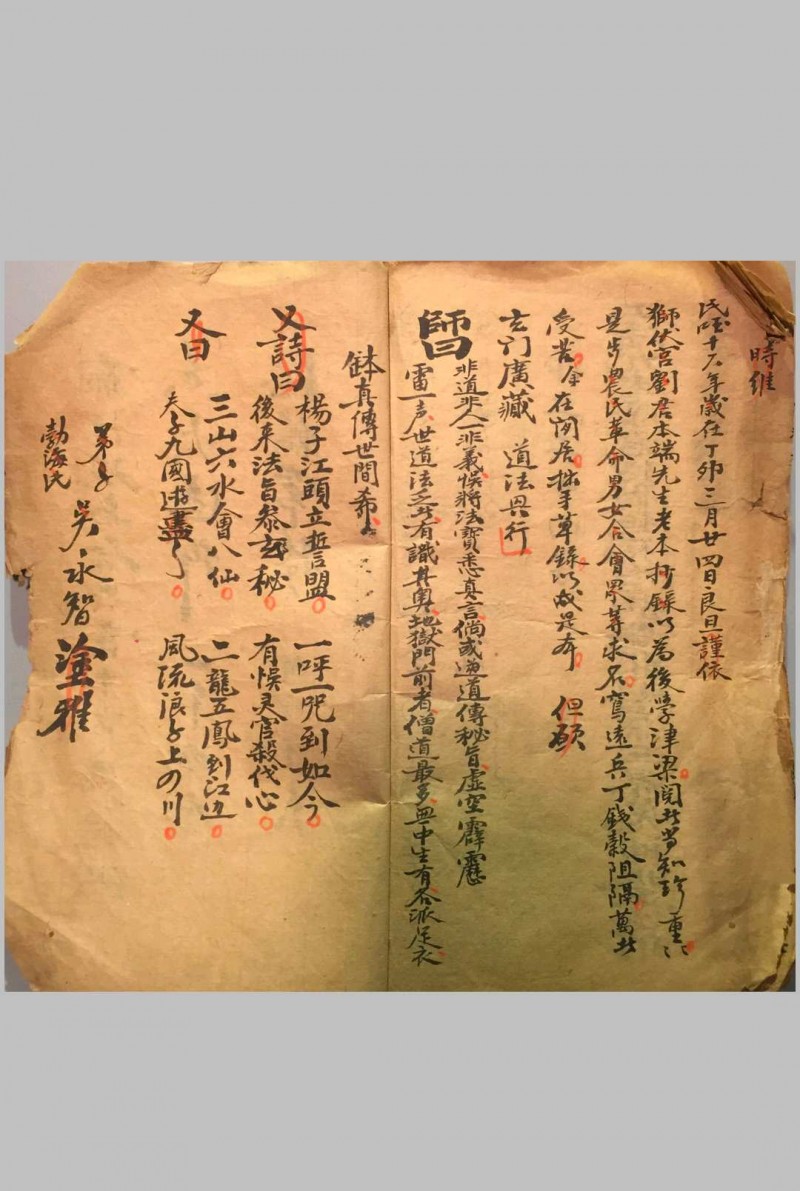 時維
民國十六年歲在丁卯三月廿四日良旦謹依
獅伏宮劉君本端先生老本抄錄以為後學津梁閱此當知珍重
是步農民革命男女合會眾等求名寫遠兵丁錢穀阻隔萬此
受苦今在閑居拙手草錄以成是本 但願
玄門廣藏 道法興行
師曰 非道非人非義悞將法寶悉真言倘或過道傳秘旨虛空霹靂
雷一声世道法乏此有識其奧地獄門前者僧道最多無中生有各派足衣
缽真傳世間希
又詩曰 楊子江頭立誓盟 一呼一咒到如今
後來法旨參玄秘 有悞灵官殺伐心
又曰 三山六水會八仙 二龍五鳳到江边
夫子九國遊盡了 風流浪子上四川
弟子
渤海氏 吳永智 塗雅